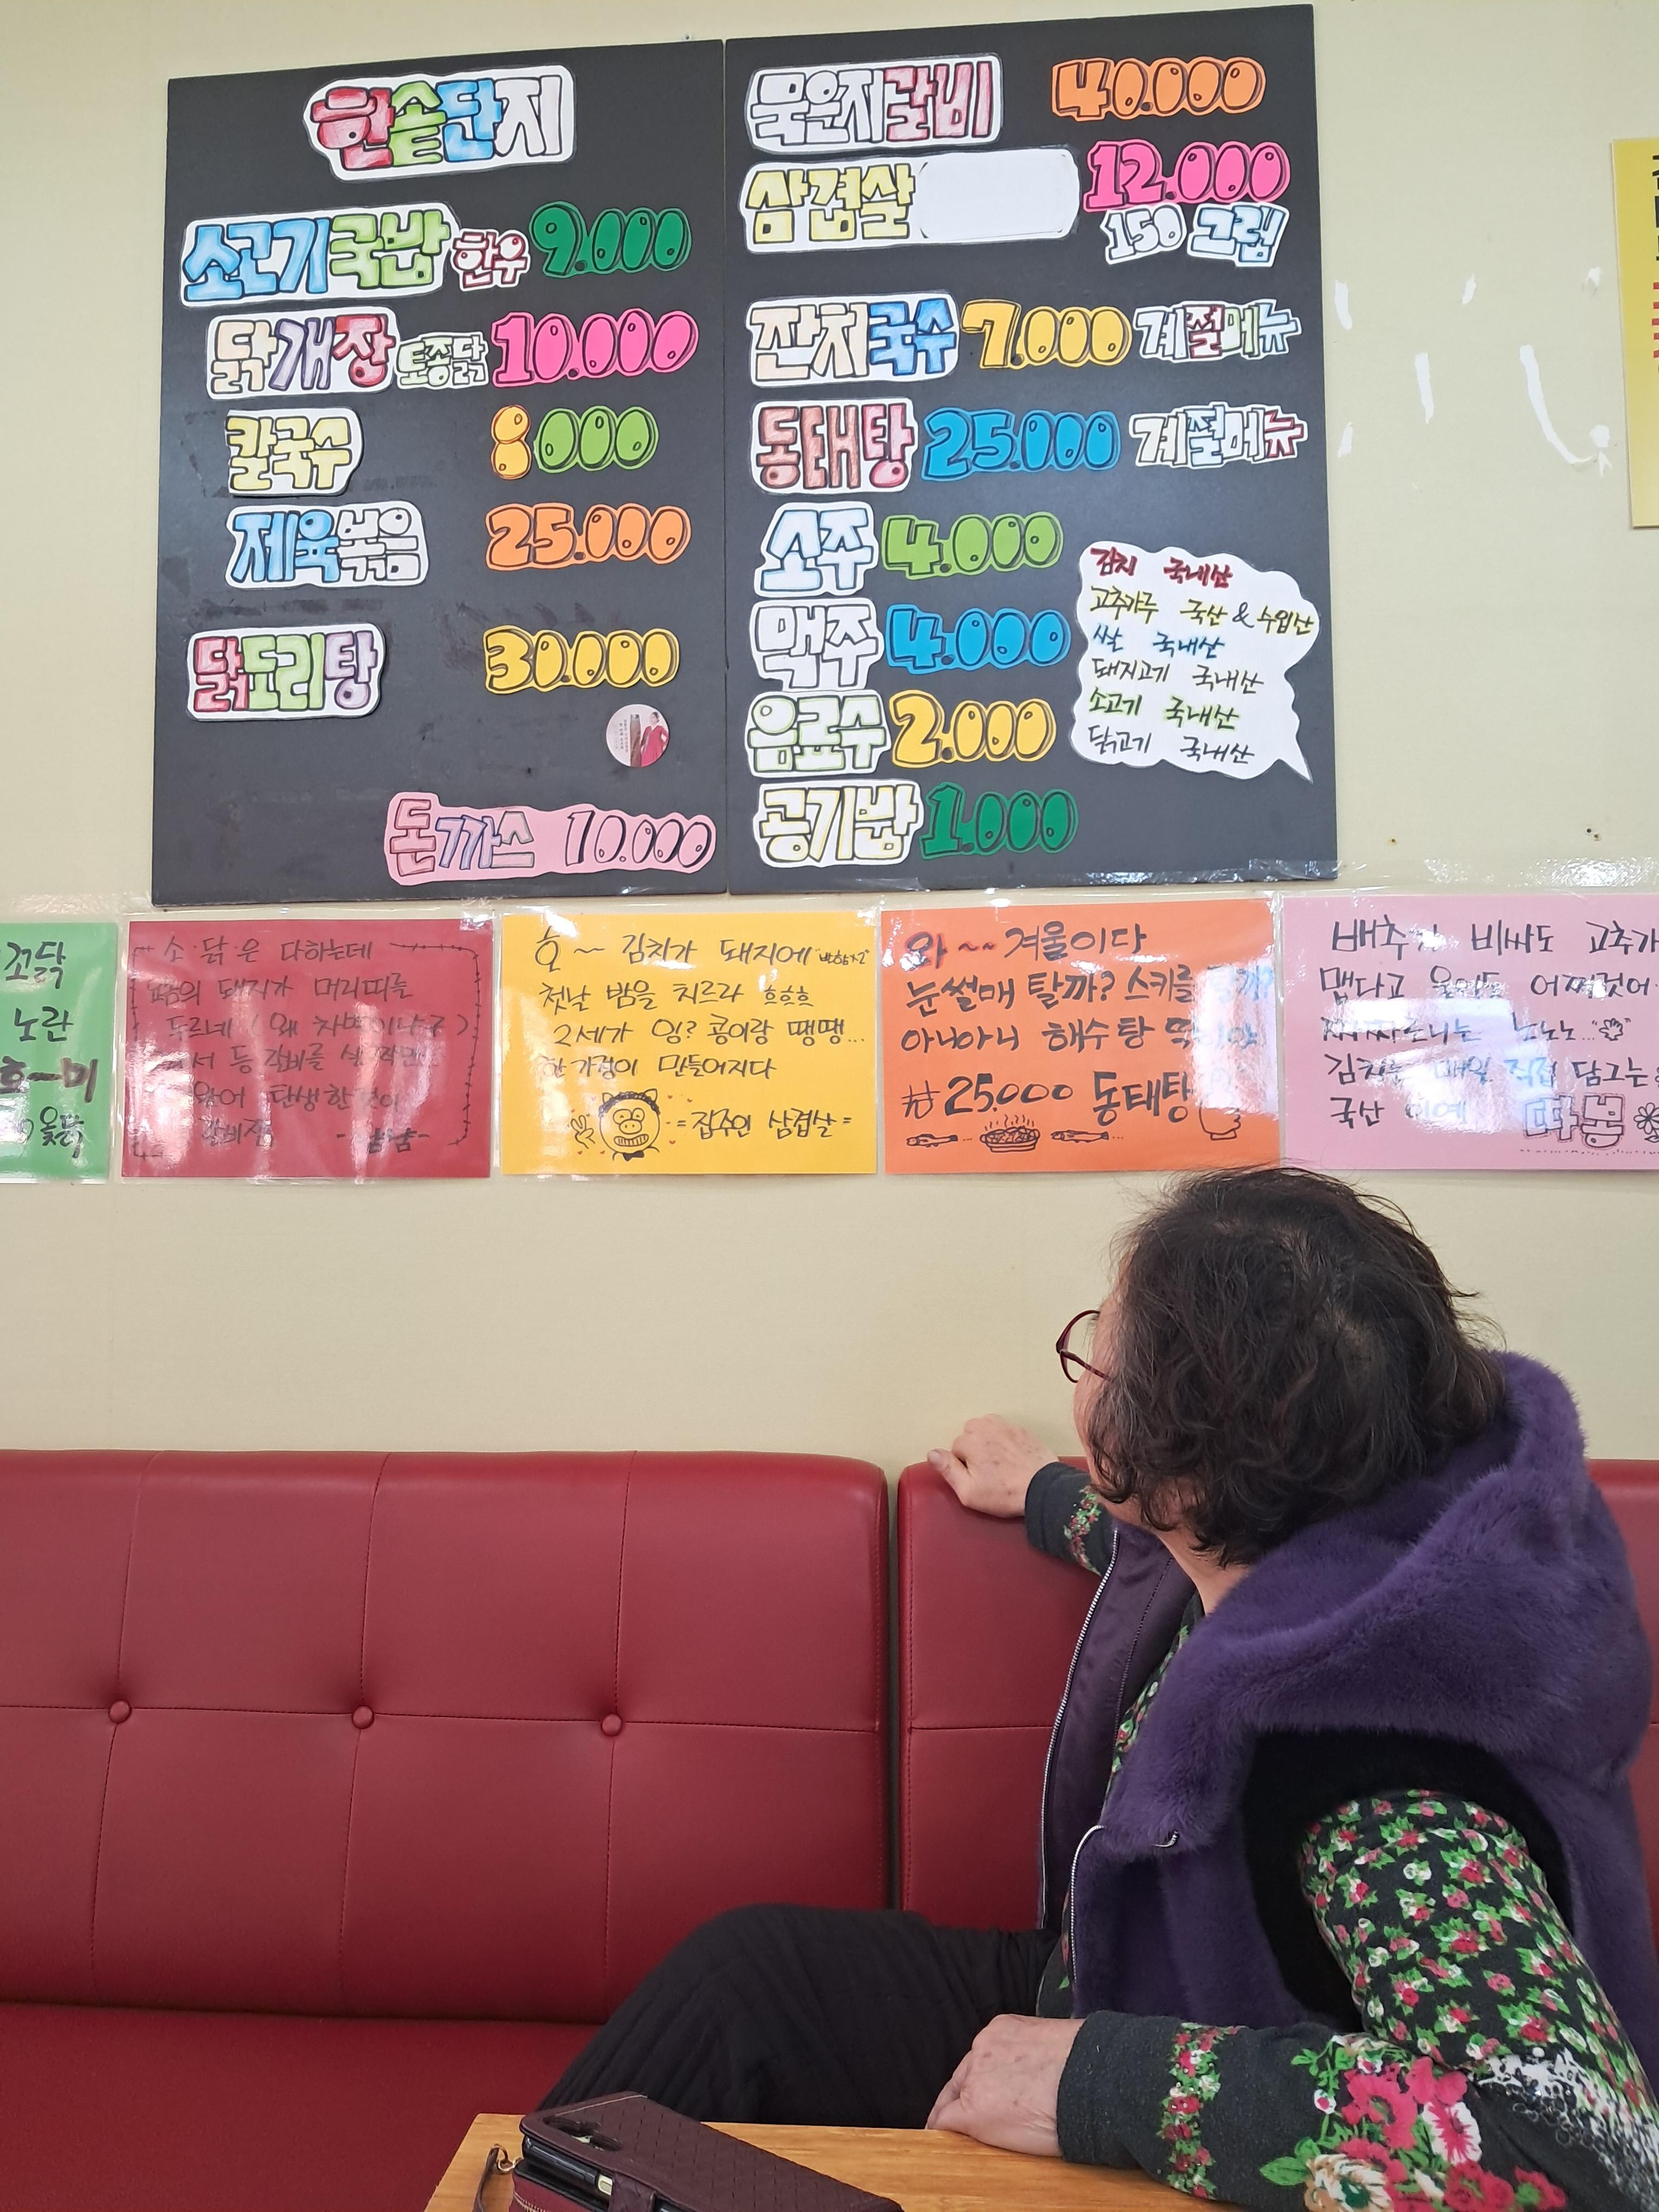 한솥단지
소고기국밥 한우 9.000
닭개장 토종닭 10.000
칼국수 8000
제육볶음 25.000
닭도리탕 30.000
돈까스 10.000
묵은지갈비 40.000
삼겹살 12.000
150 그램
잔치국수 7.000 계절메뉴
동태탕 25.000 계절메뉴
소주 4.000
맥주 4.000
음료수 2.000
공기밥 1.000
김치 국내산
고추가루 국산 & 수입산
쌀 국내산
돼지고기 국내산
소고기 국내산
닭고기 국내산
꼬닭
노란
옻닭
소·닭·은 다하는데
돼지가 머리띠를
두르네 (왜
등갈비를
탄생한 것이
호~ 김치가 돼지에
첫날 밤을 치르라 흐흐흐
2세가 잉? 콩이랑 땡땡...
한가정이 만들어지다
=집주인 삼겹살=
와~~겨울이다
눈썰매 탈까? 스키를
아니아니 해수탕
#25.000 동태탕
배추가 비싸도 고추가
맵다고 어쩌것어
김치는 매일 직접 담그는
국산
따봉